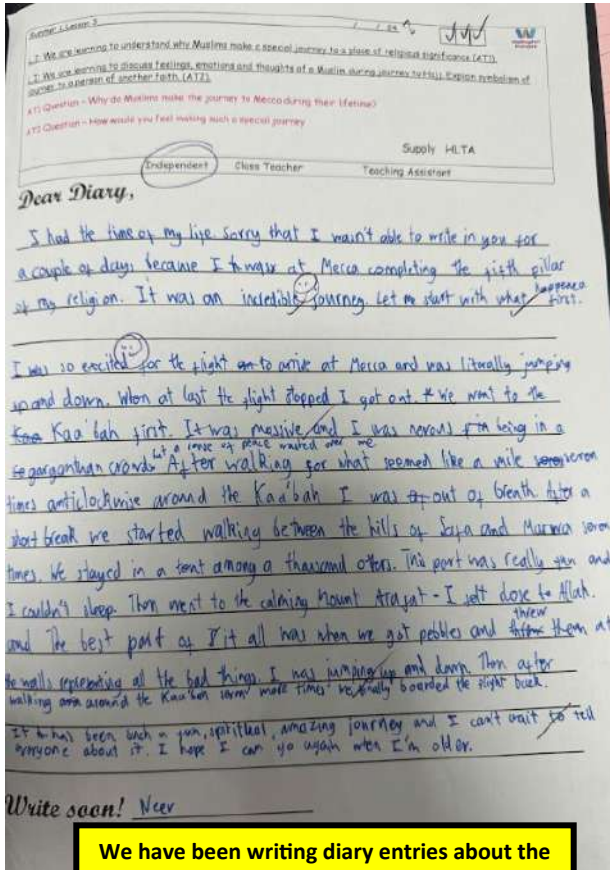 Summer 1 Lesson 3
L.I: We are learning to understand why Muslims make a special journey to a place of religious significance (AT1).
L.I: We are learning to discuss feelings, emotions and thoughts of a Muslim during journey to Hajj. Explain symbolism of
journey to a person of another faith. (AT2).
AT1 Question – Why do Muslims make the journey to Mecca during their lifetime?
AT2 Question – How would you feel making such a special journey
Supply HLTA
Independent Class Teacher Teaching Assistant
Dear Diary,
I had the time of my life. Sorry that I wasn't able to write in you for
a couple of days because I was at Mecca completing the fifth pillar
of my religion. It was an incredible journey. Let me start with what happened first.
I was so excited for the flight to arrive at Mecca and was literally jumping
up and down. When at last the flight stopped I got out. We went to the
Kaa'bah first. It was massive and I was nerous in being in a
gargantuan crowd but a sense of peace washed over me. After walking for what seemed like a mile seven
times anticlockwise around the Kaa'bah I was out of breath. After a
short break we started walking between the hills of Safa and Marwa seven
times. We stayed in a tent among a thousand others. This part was really fun and
I couldn't sleep. Then went to the calming Mount Arafat - I felt close to Allah.
and The best part of it all was when we got pebbles and threw them at
the walls representing all the bad things. I was jumping up and down. Then after
walking around the Kaa'bah seven more times we finally boarded the flight back.
It has been such a fun, spiritual, amazing journey and I can't wait to tell
everyone about it. I hope I can go again when I'm older.
Write soon! Neer
We have been writing diary entries about the